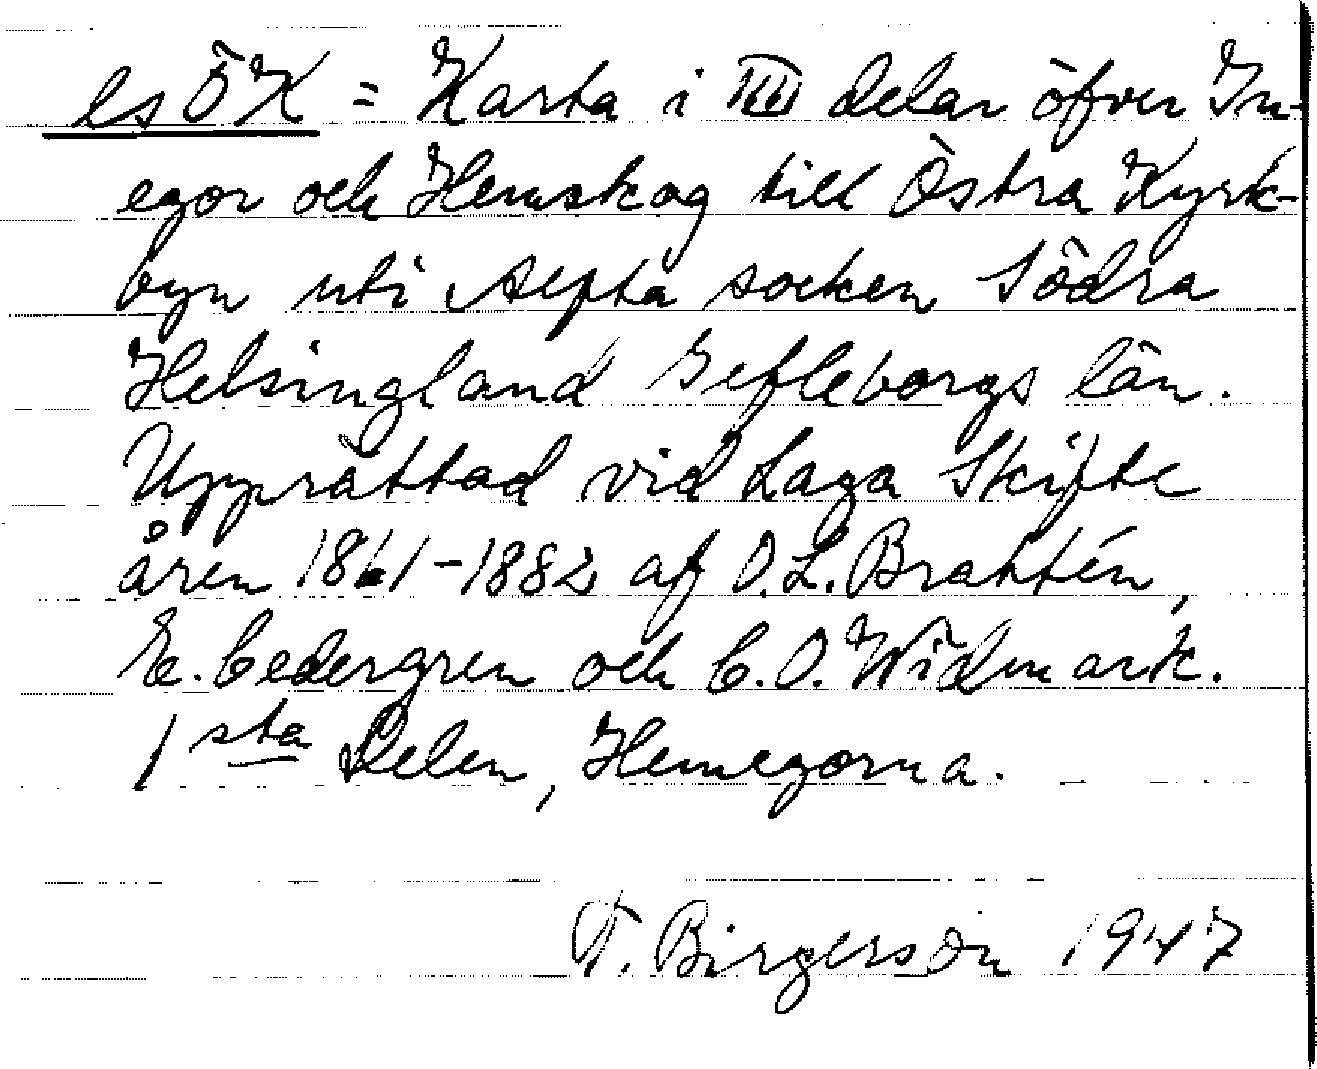 lsÖK = Karta i III delar öfver In-
egor och Hemskog till Östra Kyrk-
byn uti Alfta socken Södra
Helsingland Gefleborgs län.
Upprättad vid Laga Skifte
åren 1861-1882 af O.L. Brattén,
E. Cedergren och C.O. Widmark.
1sta Delen, Hemegorna.
T. Birgerson 1947